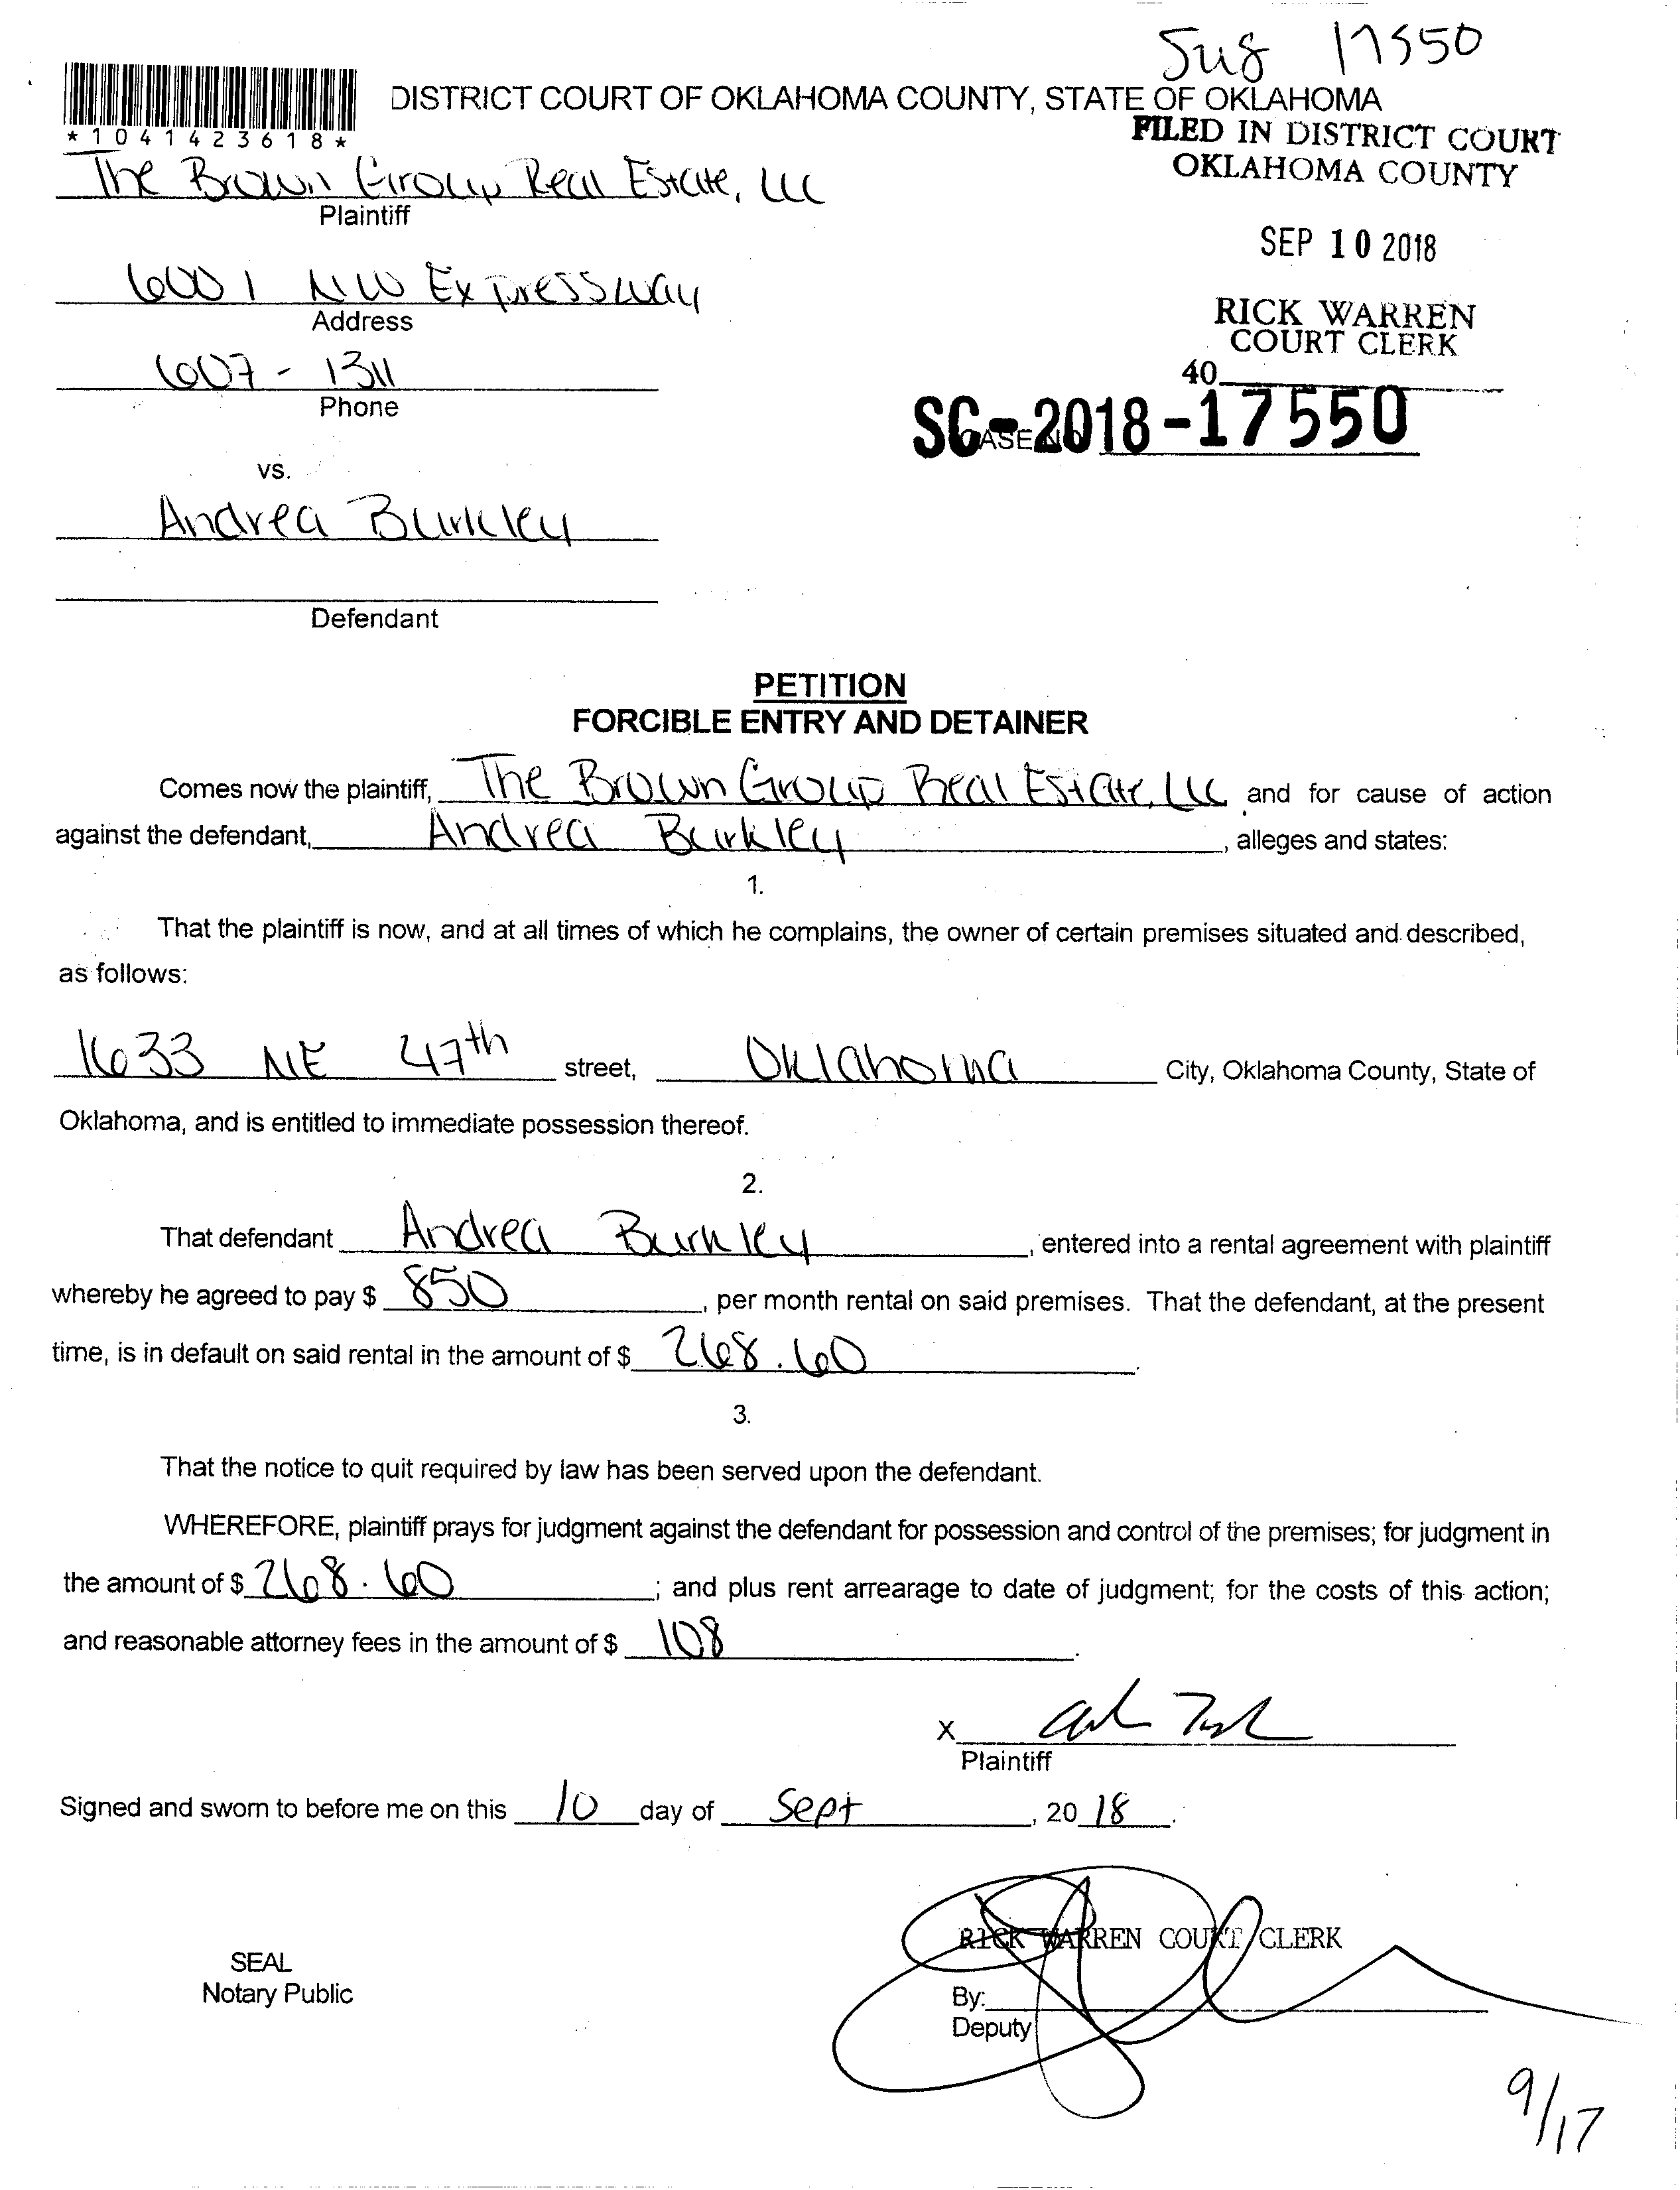 17550
DISTRICT COURT OF OKLAHOMA COUNTY, STATE OF OKLAHOMA
*1041423618*
FILED IN DISTRICT COURT
OKLAHOMA COUNTY
The Brown Group Real Estate, LLC
Plaintiff
SEP 10 2018
6001 NW Expressway
Address
RICK WARREN
COURT CLERK
607-1311
Phone
40
SC-2018-17550
CASE NO
vs.
Andrea Burkley
Defendant
PETITION
FORCIBLE ENTRY AND DETAINER
Comes now the plaintiff, The Brown Group Real Estate, LLC and for cause of action
against the defendant, Andrea Burkley, alleges and states:
1.
That the plaintiff is now, and at all times of which he complains, the owner of certain premises situated and described,
as follows:
1633 NE 47th street, Oklahoma City, Oklahoma County, State of
Oklahoma, and is entitled to immediate possession thereof.
2.
That defendant Andrea Burkley, entered into a rental agreement with plaintiff
whereby he agreed to pay $ 850, per month rental on said premises. That the defendant, at the present
time, is in default on said rental in the amount of $ 268.60.
3.
That the notice to quit required by law has been served upon the defendant.
WHEREFORE, plaintiff prays for judgment against the defendant for possession and control of the premises; for judgment in
the amount of $ 268.60; and plus rent arrearage to date of judgment; for the costs of this action;
and reasonable attorney fees in the amount of $ 108.
X
Plaintiff
Signed and sworn to before me on this 10 day of Sept, 20 18.
RICK WARREN COURT CLERK
SEAL
Notary Public
By:
Deputy
9/17